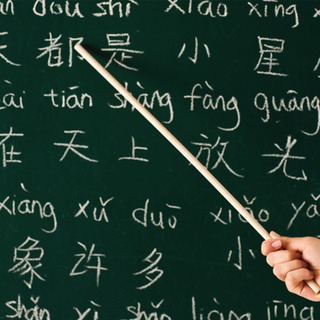 an dou shì xiǎo xīng
天 都 是 小 星
ài tiān shàng fàng guāng
在 天 上 放 光
xiàng xǔ duō xiǎo yǎ
象 许 多 小
shǎn yì shǎn liàng jīng